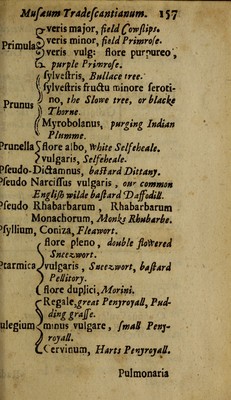 Musæum Tradescantianum. 157
veris major, field Cowslips.
Primula veris minor, field Primrose.
veris vulg: flore purpureo,
purple Primrose.
sylvestris, Bullace tree.
sylvestris fructu minore seroti-
Prunus no, the Slowe tree, or blacke
Thorne.
Myrobolanus, purging Indian
Plumme.
Prunella flore albo, white Selfeheale.
vulgaris, Selfeheale.
Pseudo-Dictamnus, bastard Dittany.
Pseudo Narcissus vulgaris, our common
English wilde bastard Daffodill.
Pseudo Rhabarbarum, Rhabarbarum
Monachorum, Monks Rhubarbe.
Psyllium, Coniza, Fleawort.
flore pleno, double flowered
Sneezwort.
Ptarmica vulgaris, Sneezwort, bastard
Pellitory.
flore duplici, Morini.
Regale, great Penyroyall, Pud-
ding grasse.
ulegium minus vulgare, small Peny-
royall.
Cervinum, Harts Penyroyall.
Pulmonaria